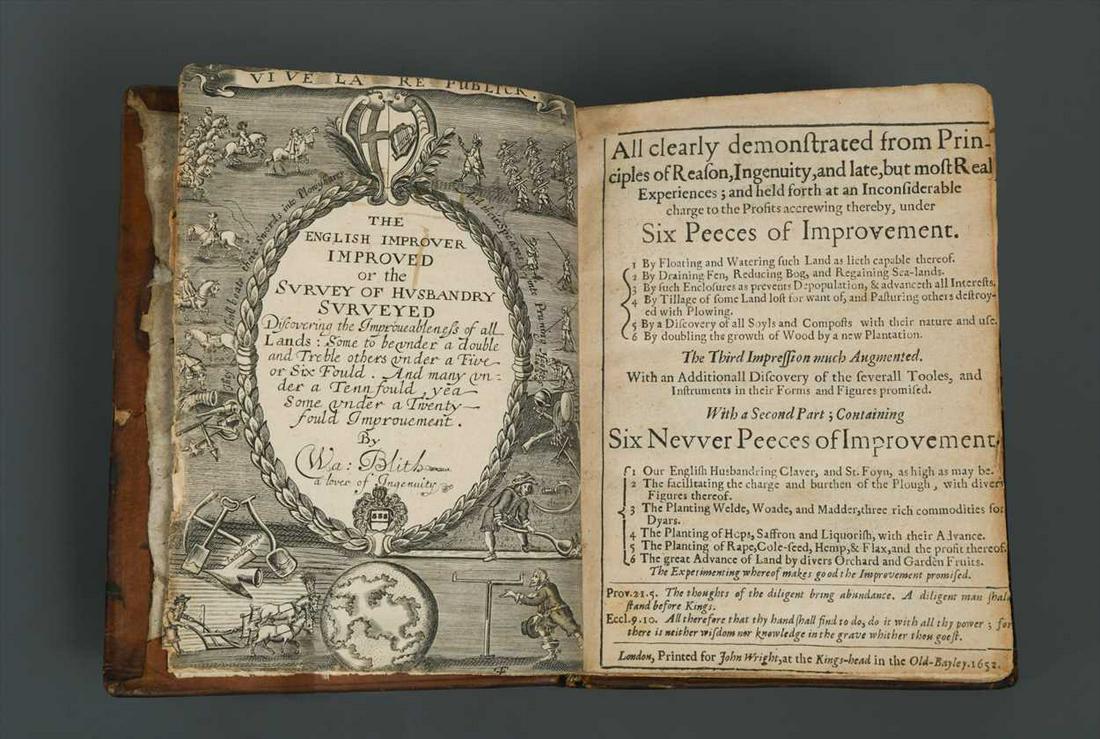 VIVE LA RE PUBLICK.
THE
ENGLISH IMPROVER
IMPROVED
or the
SVRVEY OF HVSBANDRY
SVRVEYED
Discovering the Improueableness of all
Lands: Some to be vnder a double
and Treble others vnder a Five
or Six Fould. And many vn-
der a Tenn fould, yea
Some vnder a Twenty
fould Improuement.
By
Wa: Blith
a lover of Ingenuity
All clearly demonſtrated from Prin-
ciples of Reaſon, Ingenuity, and late, but moſt Real
Experiences; and held forth at an Inconſiderable
charge to the Profits accrewing thereby, under
Six Peeces of Improvement.
1 By Floating and Watering ſuch Land as lieth capable thereof.
2 By Draining Fen, Reducing Bog, and Regaining Sea-lands.
3 By ſuch Encloſures as prevents Depopulation, & advanceth all Intereſts.
4 By Tillage of ſome Land loſt for want of, and Paſturing others deſtroy-
ed with Plowing.
5 By a Diſcovery of all Soyls and Compoſts with their nature and uſe.
6 By doubling the growth of Wood by a new Plantation.
The Third Impreſſion much Augmented.
With an Additionall Diſcovery of the ſeverall Tooles, and
Inſtruments in their Forms and Figures promiſed.
With a Second Part; Containing
Six Nevver Peeces of Improvement.
1 Our Engliſh Husbandring Claver, and St. Foyn, as high as may be.
2 The facilitating the charge and burthen of the Plough, with divers
Figures thereof.
3 The Planting Welde, Woade, and Madder, three rich commodities for
Dyars.
4 The Planting of Hops, Saffron and Liquoriſh, with their Advance.
5 The Planting of Rape, Cole-ſeed, Hemp, & Flax, and the profit thereof.
6 The great Advance of Land by divers Orchard and Garden Fruits.
The Experimenting whereof makes good the Improvement promiſed.
Prov. 21.5. The thoughts of the diligent bring abundance. A diligent man ſhall
ſtand before Kings.
Eccl. 9.10. All therefore that thy hand ſhall find to do, do it with all thy power; for
there is neither wiſdom nor knowledge in the grave whither thou goeſt.
London, Printed for John Wright, at the Kings-head in the Old-Bayley. 1652.